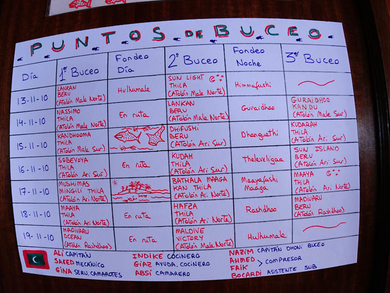 PUNTOS DE BUCEO
Día 1º Buceo Fondeo Día 2º Buceo Fondeo Noche 3º Buceo
13-11-10 LANKAN BERU (Atolón Male Norte) Hulhumale SUN LIGHT THILA (Atolón Male Norte) Himmafushi
14-11-10 NASSIMO THILA (Atolón Male Norte) En ruta LANKAN BERU (Atolón Male Norte) Guraidhoo GURAIDHOO KANDU (Atolón Male Sur)
15-11-10 KANDHOOMA THILA (Atolón Male Sur) DHIFUSHI BERU (Atolón Ari Sur) Dhangethi KUDARAH THILA (Atolón Ari Sur)
16-11-10 THILA (Atolón Ari Sur) En ruta KUDAH THILA (Atolón Ari Sur) SUN ISLAND BERU (Atolón Ari Sur)
17-11-10 MUSHIMAS MINGILI THILA (Atolón Ari Norte) BATHALA MAAGA KAN THILA (Atolón Ari Norte) Maayafushi Maaga MAAYA THILA (Atolón Ari Norte)
18-11-10 MAAYA THILA (Atolón Ari Norte) En ruta HAFZA THILA (Atolón Ari Norte) Rashdhoo MADIVARU BERU (Atolón Rashdhoo)
19-11-10 OCEAN (Atolón Rashdhoo) En ruta MALDIVE VICTORY (Atolón Male Norte) Hulhumale
ALI CAPITÁN
SAEED MECÁNICO
GINA SEÑU. CAMAROTES
INDIKE COCINERO
GIAZ AYUDA. COCINERO
ABSI CAMARERO
NAZIM CAPITÁN DHONI BUCEO
AHMED
FAIK > COMPRESOR
BOCARDI ASISTENTE SUB